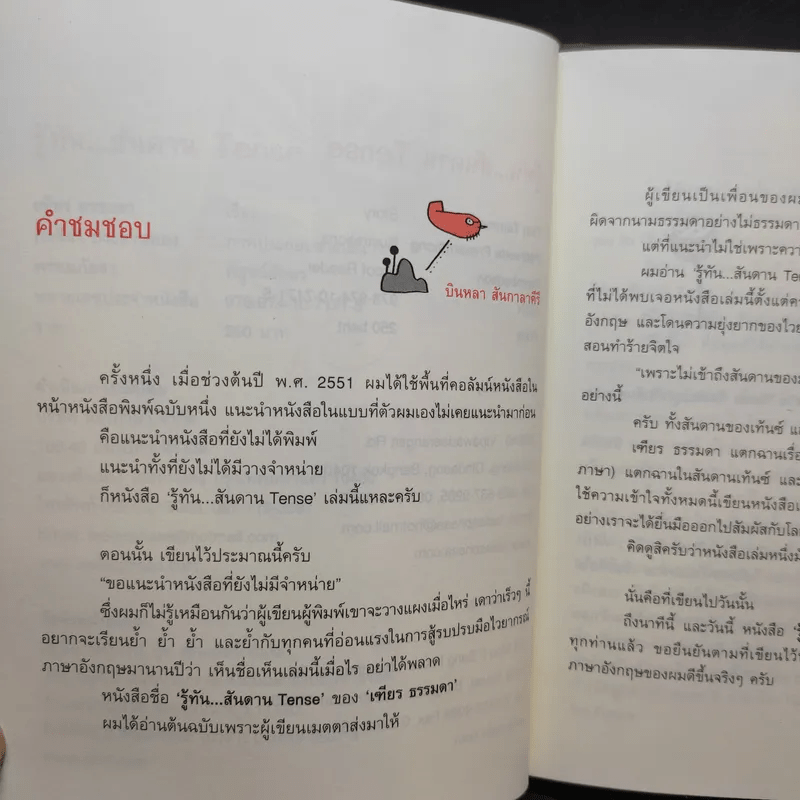 คำชมชอบ
บินหลา สันกาลาคีรี
ครั้งหนึ่ง เมื่อช่วงต้นปี พ.ศ. 2551 ผมได้ใช้พื้นที่คอลัมน์หนังสือใน
หน้าหนังสือพิมพ์ฉบับหนึ่ง แนะนำหนังสือในแบบที่ตัวผมเองไม่เคยแนะนำมาก่อน
คือแนะนำหนังสือที่ยังไม่ได้พิมพ์
แนะนำทั้งที่ยังไม่ได้มีวางจำหน่าย
ก็หนังสือ ‘รู้ทัน...สันดาน Tense’ เล่มนี้แหละครับ
ตอนนั้น เขียนไว้ประมาณนี้ครับ
“ขอแนะนำหนังสือที่ยังไม่มีจำหน่าย”
ซึ่งผมก็ไม่รู้เหมือนกันว่าผู้เขียนผู้พิมพ์เขาจะวางแผงเมื่อไหร่ เดาว่าเร็วๆ นี้
อยากจะเรียนย้ำ ย้ำ ย้ำ และย้ำกับทุกคนที่อ่อนแรงในการสู้รบปรบมือไวยากรณ์
ภาษาอังกฤษมานานปีว่า เห็นชื่อเห็นเล่มนี้เมื่อไร อย่าได้พลาด
หนังสือชื่อ ‘รู้ทัน...สันดาน Tense’ ของ ‘เฑียร ธรรมดา’
ผมได้อ่านต้นฉบับเพราะผู้เขียนเมตตาส่งมาให้
ผู้เขียนเป็นเพื่อนของผม
ผิดจากนามธรรมดาอย่างไม่ธรรมดา
แต่ที่แนะนำไม่ใช่เพราะ
ผมอ่าน ‘รู้ทัน...สันดาน Tense
ที่ไม่ได้พบเจอหนังสือเล่มนี้ตั้งแต่
อังกฤษ และโดนความยุ่งยากของ
สอนทำร้ายจิตใจ
“เพราะไม่เข้าถึงสันดานของ
อย่างนี้
ครับ ทั้งสันดานของเท้นซ์
เฑียร ธรรมดา แตกฉาน
ภาษา) แตกฉานในสันดานเท้นซ์ และ
ใช้ความเข้าใจทั้งหมดนี้เขียนหนังสือ
อย่างเราจะได้ยื่นมือออกไปสัมผัสกับ
คิดดูสิครับว่าหนังสือเล่มหนึ่ง
นั่นคือที่เขียนไปวันนั้น
ถึงนาทีนี้ และวันนี้ หนังสือ
ทุกท่านแล้ว ขอยืนยันตามที่เขียนไว้
ภาษาอังกฤษของผมดีขึ้นจริงๆ ครับ